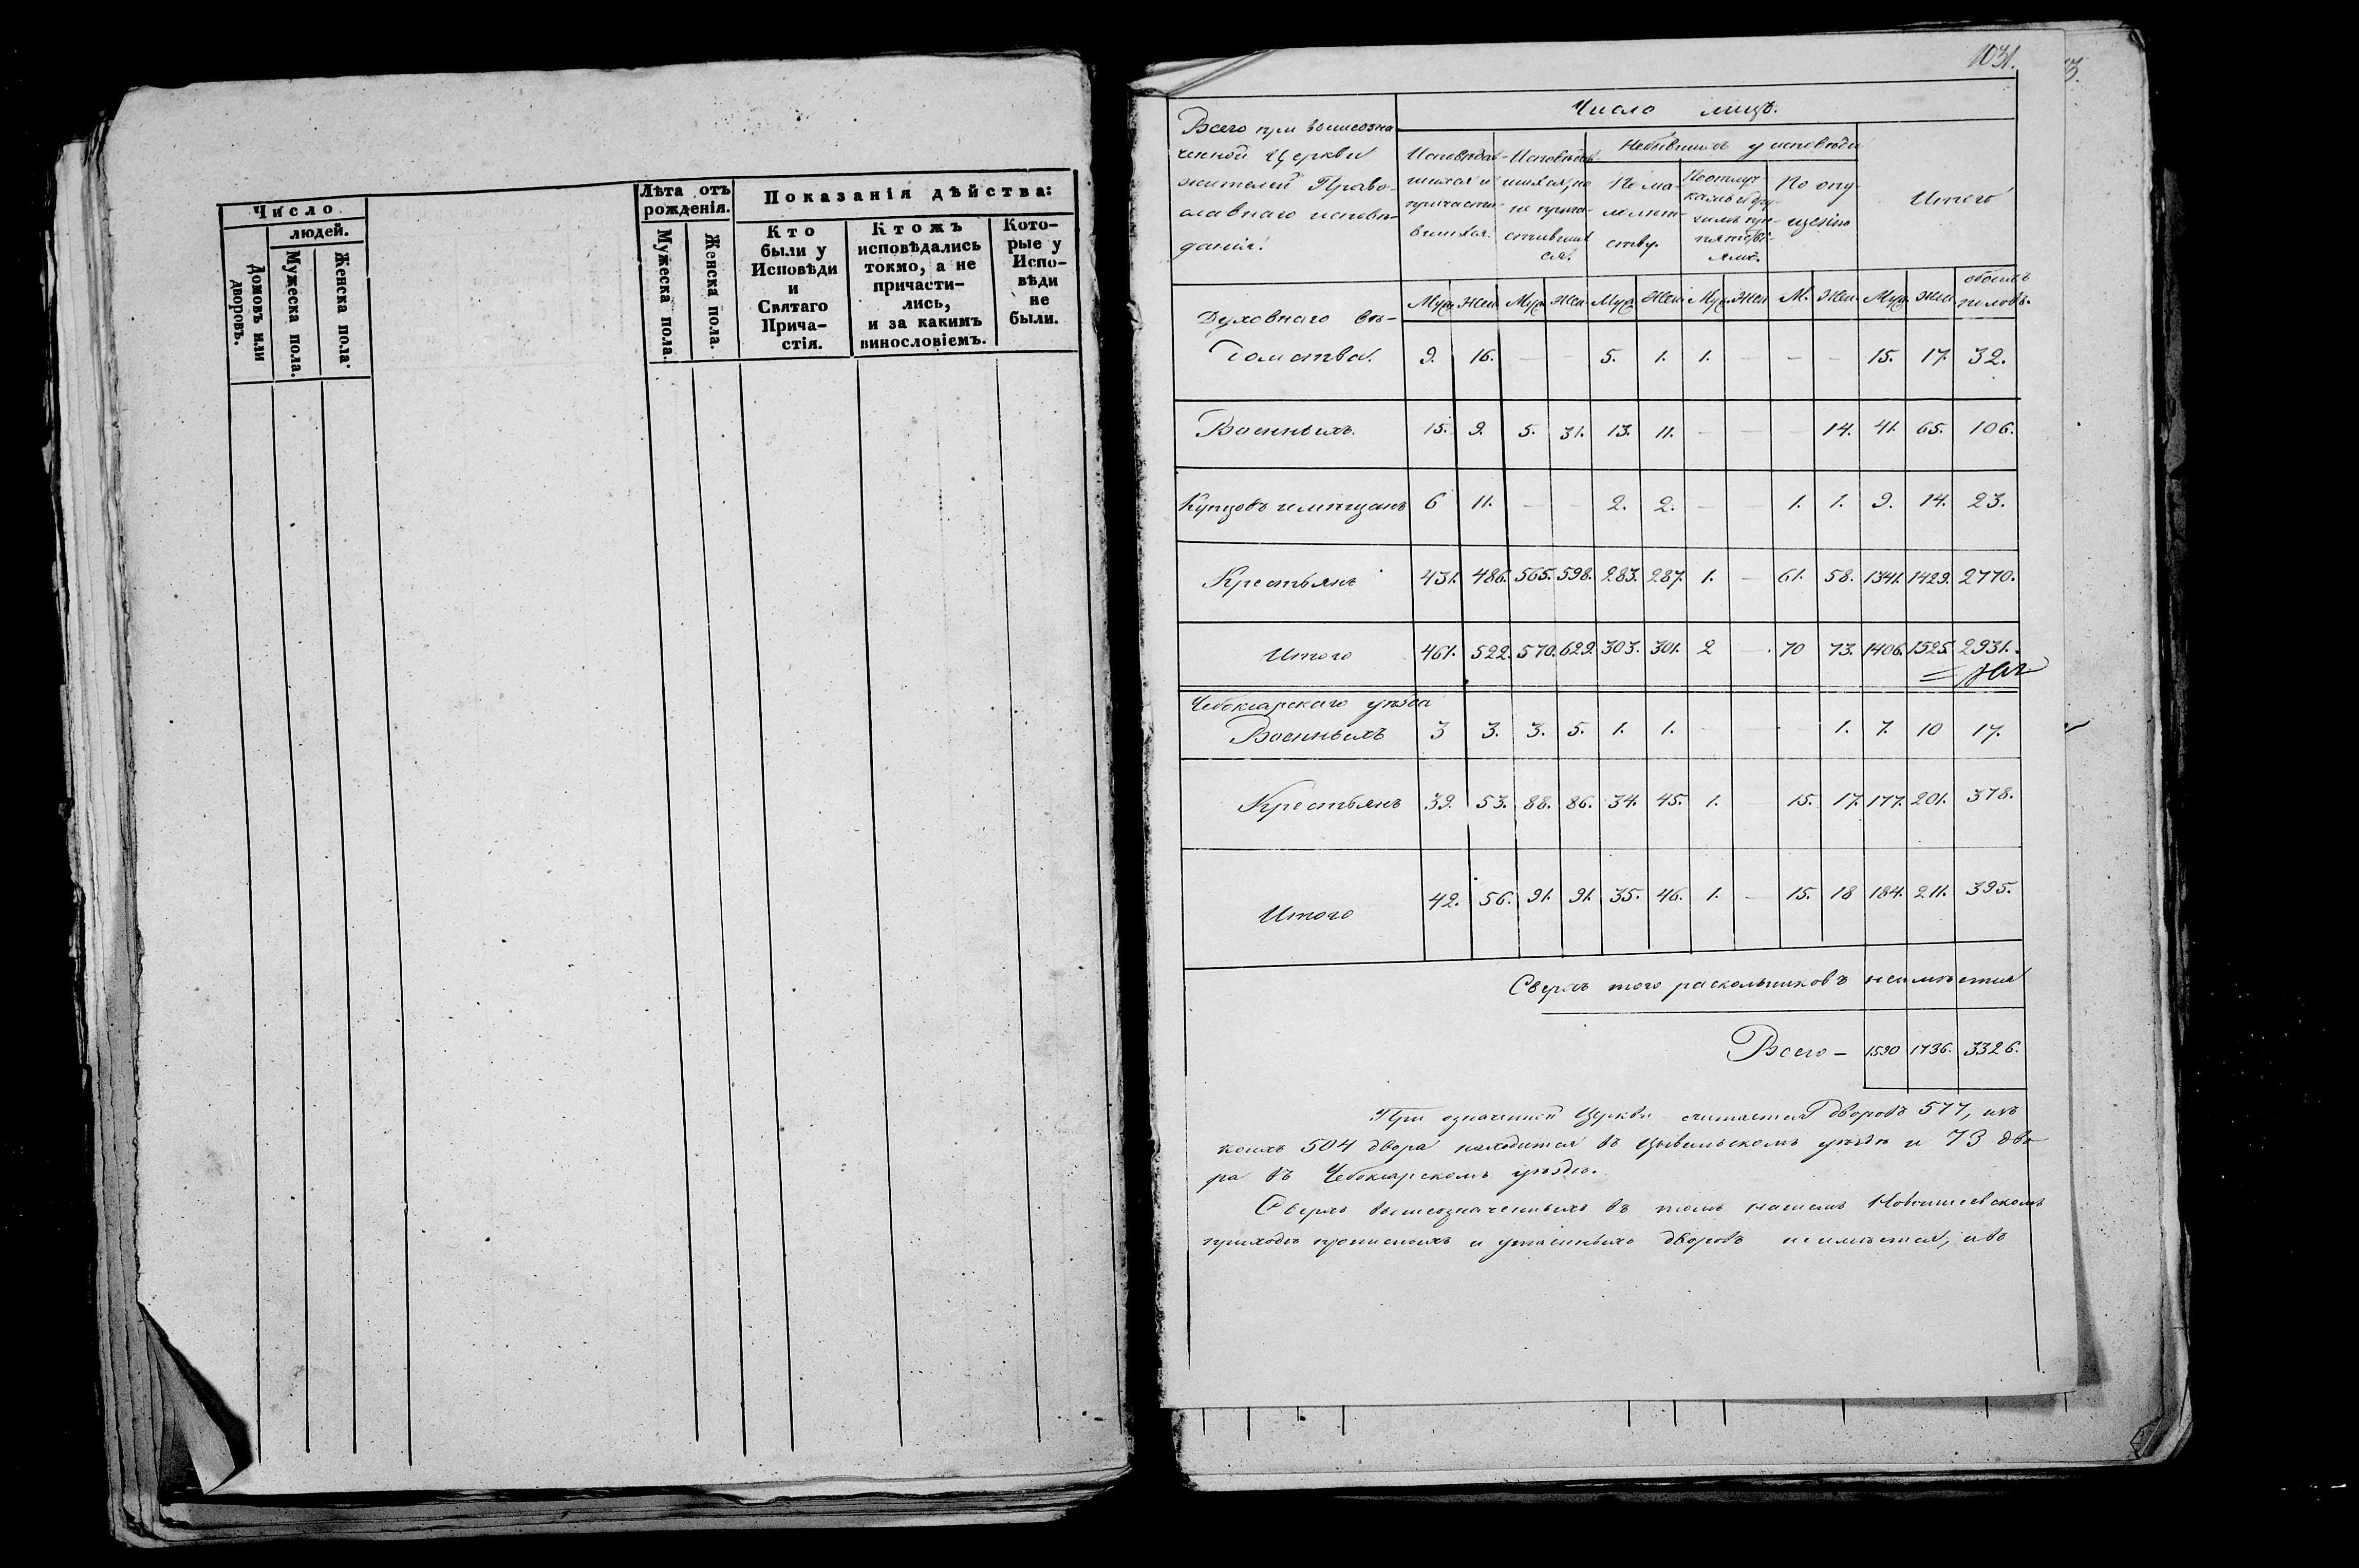 Число
людей.
Домовъ или дворовъ.
Мужеска пола.
Женска пола.
Лѣта отъ
рожденія.
Мужеска пола.
Женска пола.
Показанія дѣйства:
Кто
были у
Исповѣди
и
Святаго
Прича-
стія.
Ктожъ
исповѣдались
токмо, а не
причасти-
лись,
и за какимъ
винословіемъ.
Кото-
рые у
Испо-
вѣди
не
были.
1031.
Всего при вышеозна-
ченной Церкви
жителей Право-
славнаго исповѣ-
данія.
Число лицъ.
Исповѣдав-
шихся и
причасти-
вшихся.
Исповѣдав-
шихся, но
не прича-
стивших
ся.
Небывшихъ у исповѣди
По ма-
лолѣт-
ству.
По отлуч-
камъ и дру-
гимъ пре-
пятстві-
ямъ.
По опу-
щенію
Итого
Муж. Жен. Муж. Жен. Муж. Жен. Муж. Жен. М. Жен. Муж. Жен. обоихъ половъ.
Духовнаго вѣ-
домства. 9. 16. — — 5. 1. 1. — — — 15. 17. 32.
Военныхъ. 15. 9. 5. 31. 13. 11. — — — 14. 41. 65. 106.
Купцовъ и мѣщанъ 6 11. — — 2. 2. — — 1. 1. 9. 14. 23.
Крестьянъ 431. 486. 565. 598. 283. 287. 1. — 61. 58. 1341. 1429. 2770.
Итого 461. 522. 570. 629. 303. 301. 2 — 70 73. 1406. 1525. 2931.
Чебоксарскаго уѣзда
Военныхъ 3 3. 3. 5. 1. 1. — — — 1. 7. 10 17.
Крестьянъ 39. 53. 88. 86. 34. 45. 1. 15. 17. 177. 201. 378.
Итого 42. 56. 91. 91. 35. 46. 1. — 15. 18 184. 211. 395.
Сверхъ того раскольниковъ неимѣется
Всего — 1590 1736. 3326.
При означенной Церкви считается дворовъ 577, изъ
коихъ 504 двора находится въ Цывильскомъ уѣздѣ и 73 дво
ра въ Чебоксарскомъ уѣздѣ.
Сверхъ вышеозначенныхъ въ томъ нашемъ
приходѣ прописныхъ и утаенныхъ дворовъ не имѣется, и въ